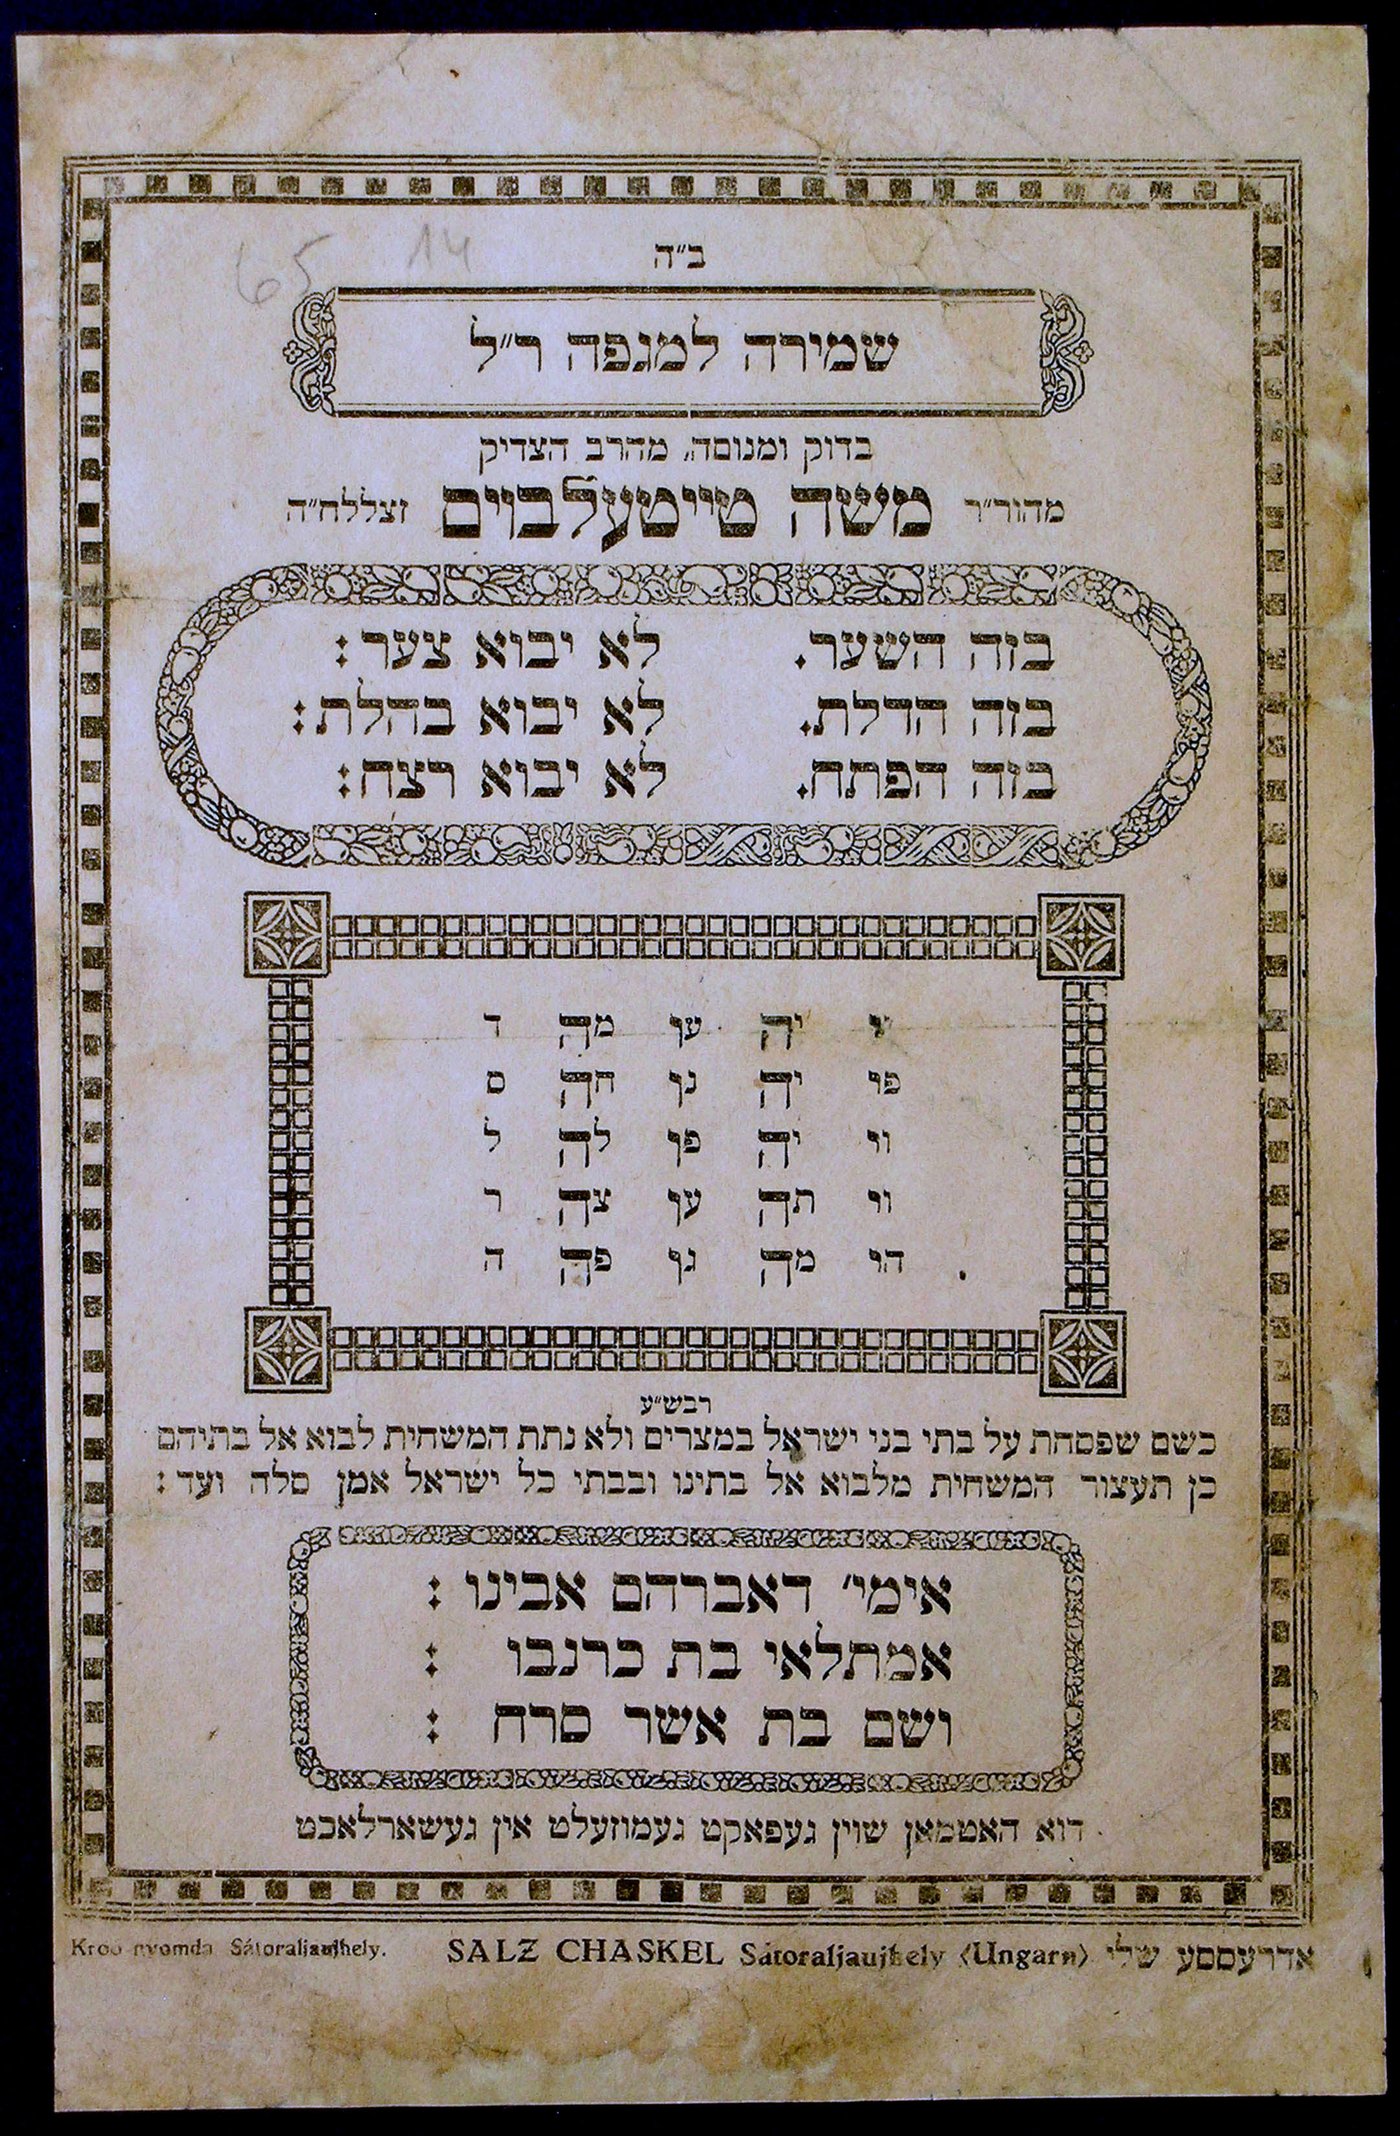 65 14
ב״ה
שמירה למגפה ר״ל
בדוק ומנוסה, מהרב הצדיק
מהור״ר משה טייטעלבוים זצללח״ה
בזה השער. לא יבוא צער :
בזה הדלת. לא יבוא בהלת :
בזה הפתח. לא יבוא רצח :
יה עו מה ד
פו יה נו חה ס
וי יה פו לה ל
וי תה עו צה ר
הו מה גו פה ה
רבש״ע
כשם שפסחת על בתי בני ישראל במצרים ולא נתת המשחית לבוא אל בתיהם
כן תעצור המשחית מלבוא אל בתינו ובבתי כל ישראל אמן סלה ועד :
אימי׳ דאברהם אבינו :
אמתלאי בת כרנבו :
ושם בת אשר סרח :
דוא האטמאן שוין געפאקט געמוזעלט אין געשארלאכט
Kroo nyomda Sátoraljaujhely. SALZ CHASKEL Sátoraljaujhely (Ungarn) אדרעססע שלי